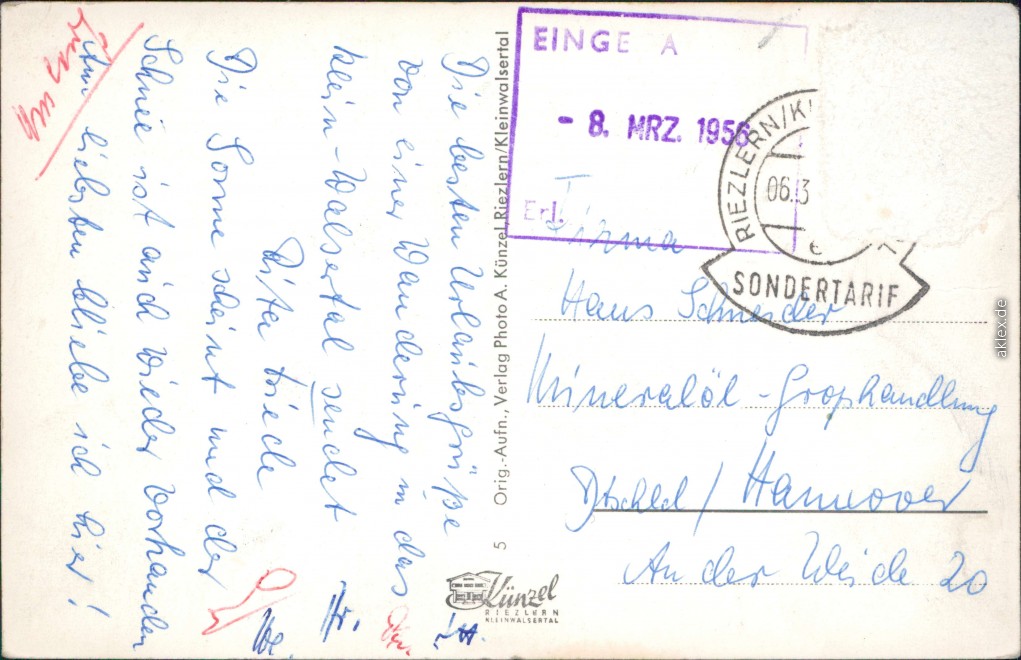 Die besten Urlaubsgrüße
von einer Wanderung in das
Klein-Walsertal sendet
Rita
Die Sonne scheint und der
Schnee ist auch wieder vorhanden
Am liebsten bliebe ich hier!
5 Orig.-Aufn., Verlag Photo A. Künzel, Riezlern/Kleinwalsertal
Künzel
RIEZLERN
KLEINWALSERTAL
EINGE A
- 8. MRZ. 1956
Erl.
RIEZLERN/K
06.3
SONDERTARIF
Firma
Hans Schneider
Mineralöl-Großhandlung
Dtschld/Hannover
An der Weide 20
aklex.de